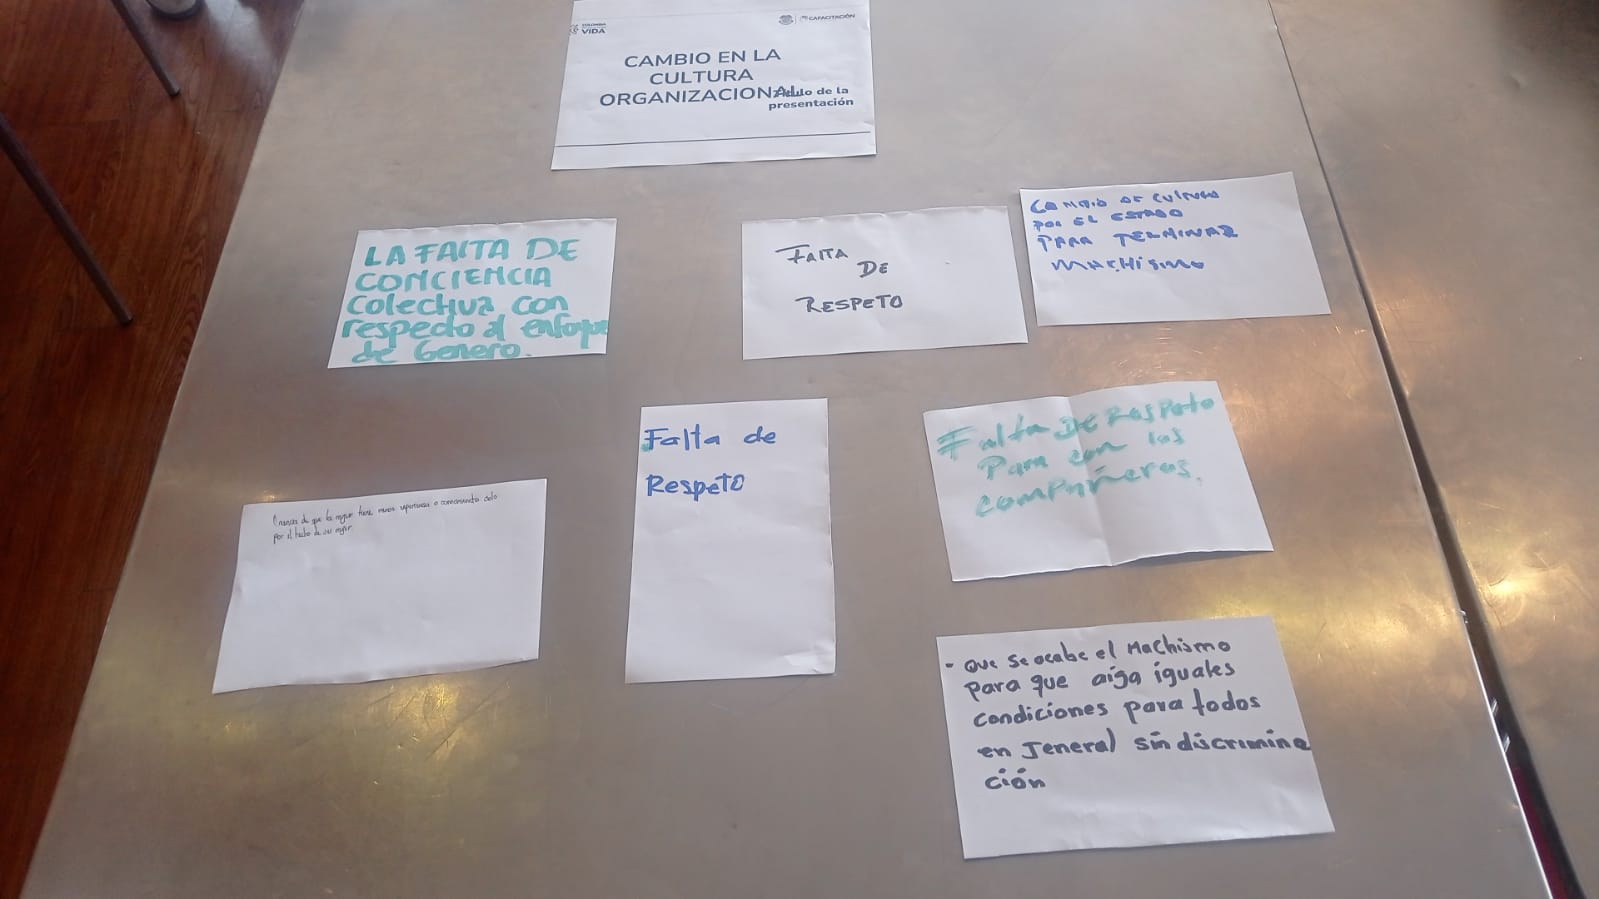 COLOMBIA
VIDA
CAPACITACIÓN
CAMBIO EN LA
CULTURA
ORGANIZACIONAL
Título de la
presentación
LA FALTA DE
CONCIENCIA
Colectiva con
respecto al enfoque
de Genero.
FALTA
DE
RESPETO
CAMBIO DE CULTURA
POR EL ESTADO
PARA TERMINAR
MACHISMO
Falta de
Respeto
Falta De Respeto
Para con las
compañeras.
Creencia de que la mujer tiene menos importancia o conocimiento solo
por el hecho de ser mujer
- Que se acabe el Machismo
para que aiga iguales
condiciones para todos
en Jeneral sin discrimina
ción